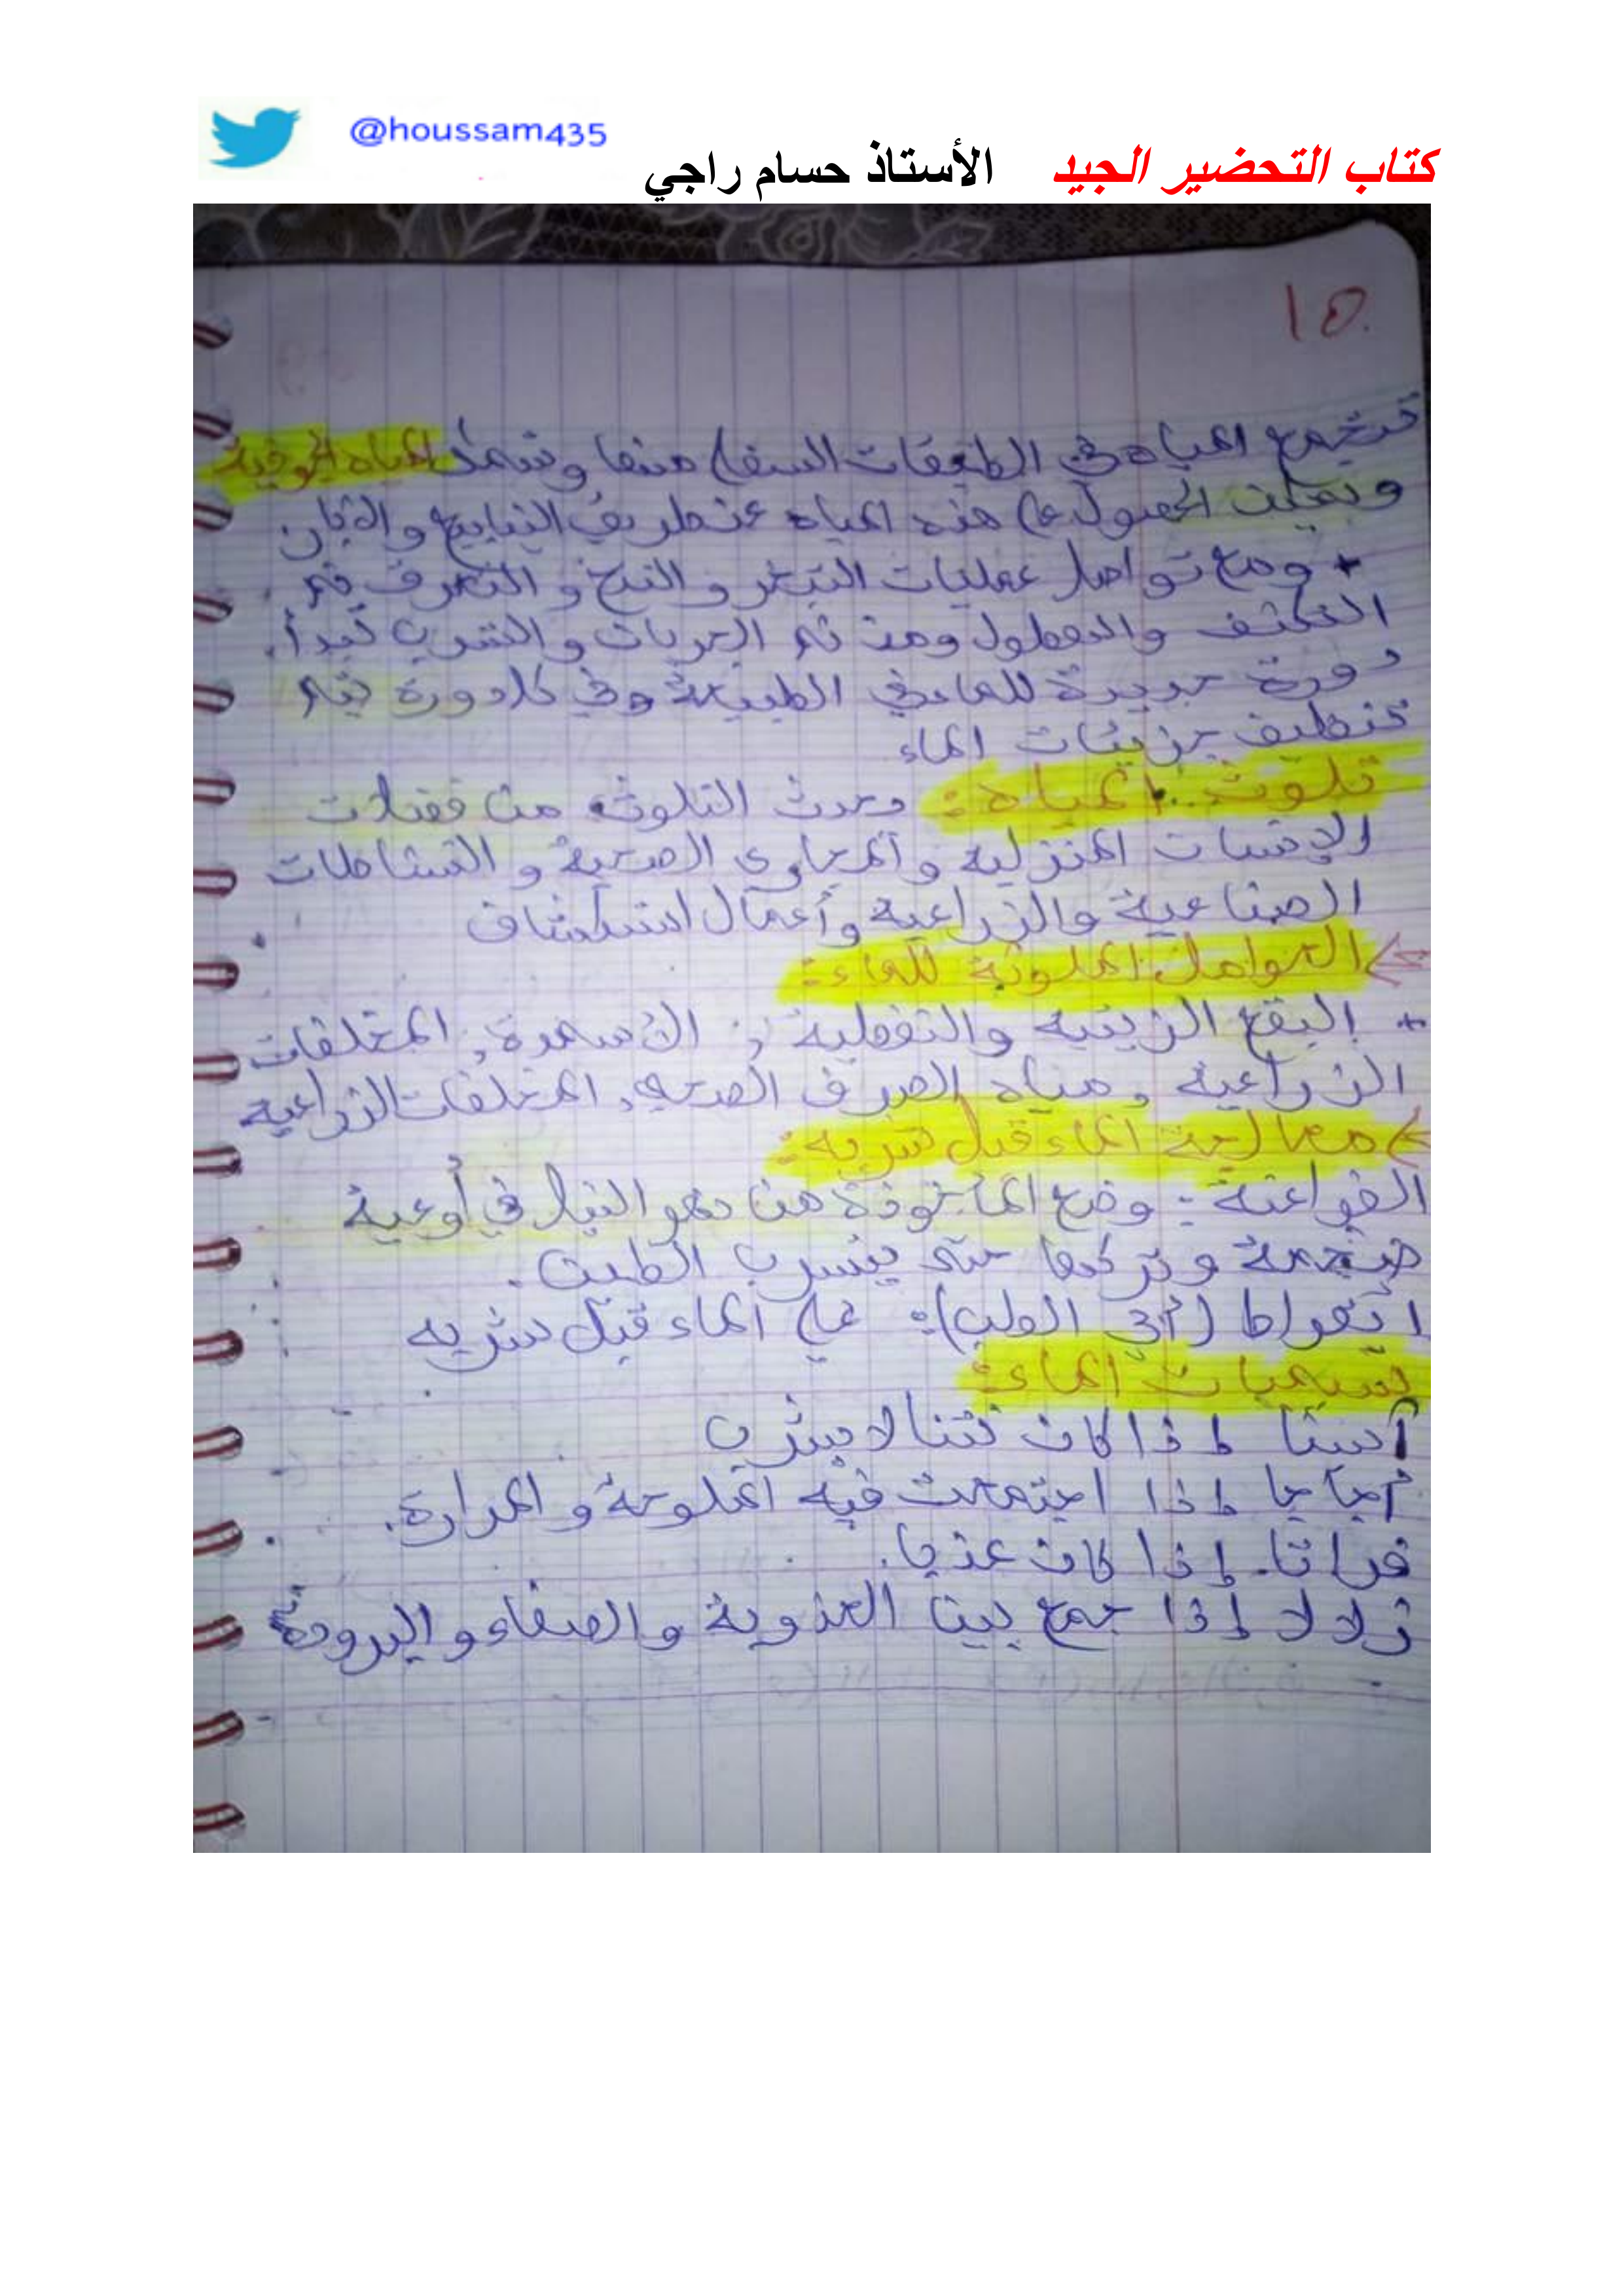 @houssam435
كتاب التحضير الجيد الأستاذ حسام راجي
10
تتجمع المياه في الطبقات السفلى منها وتسمى المياه الجوفية
ويمكن الحصول على هذه المياه عن طريق الينابيع والآبار
+ ومع تواصل عمليات التبخر والنتح و التعرق ثم
التكثف والهطول ومن ثم الجريان والتسرب تبدأ
دورة جديدة للماء في الطبيعة وفي كل دورة يتم
تنظيف جزيئات الماء
تلوث المياه: يحدث التلوث من فضلات
الإنسان المنزلية والمجاري الصحية و النشاطات
الصناعية والزراعية وأعمال استكشاف
العوامل الملوثة للماء:
+ البقع الزيتية والنفطية, الأسمدة, المخلفات
الزراعية, مياه الصرف الصحي, المخلفات الزراعية
معالجة الماء قبل شربه:
الفراعنة: وضع المأخوذة من نهر النيل في أوعية
ضخمة وتركها حتى يترسب الطين.
ابقراط (أبي الطب): غلى الماء قبل شربه
تسميات الماء:
آسنا إذا كان نتنا لا يشرب
أجاجا إذا اجتمعت فيه الملوحة و المرارة.
فراتا. إذا كان عذبا.
زلالا إذا جمع بين العذوبة والصفاء و البرودة